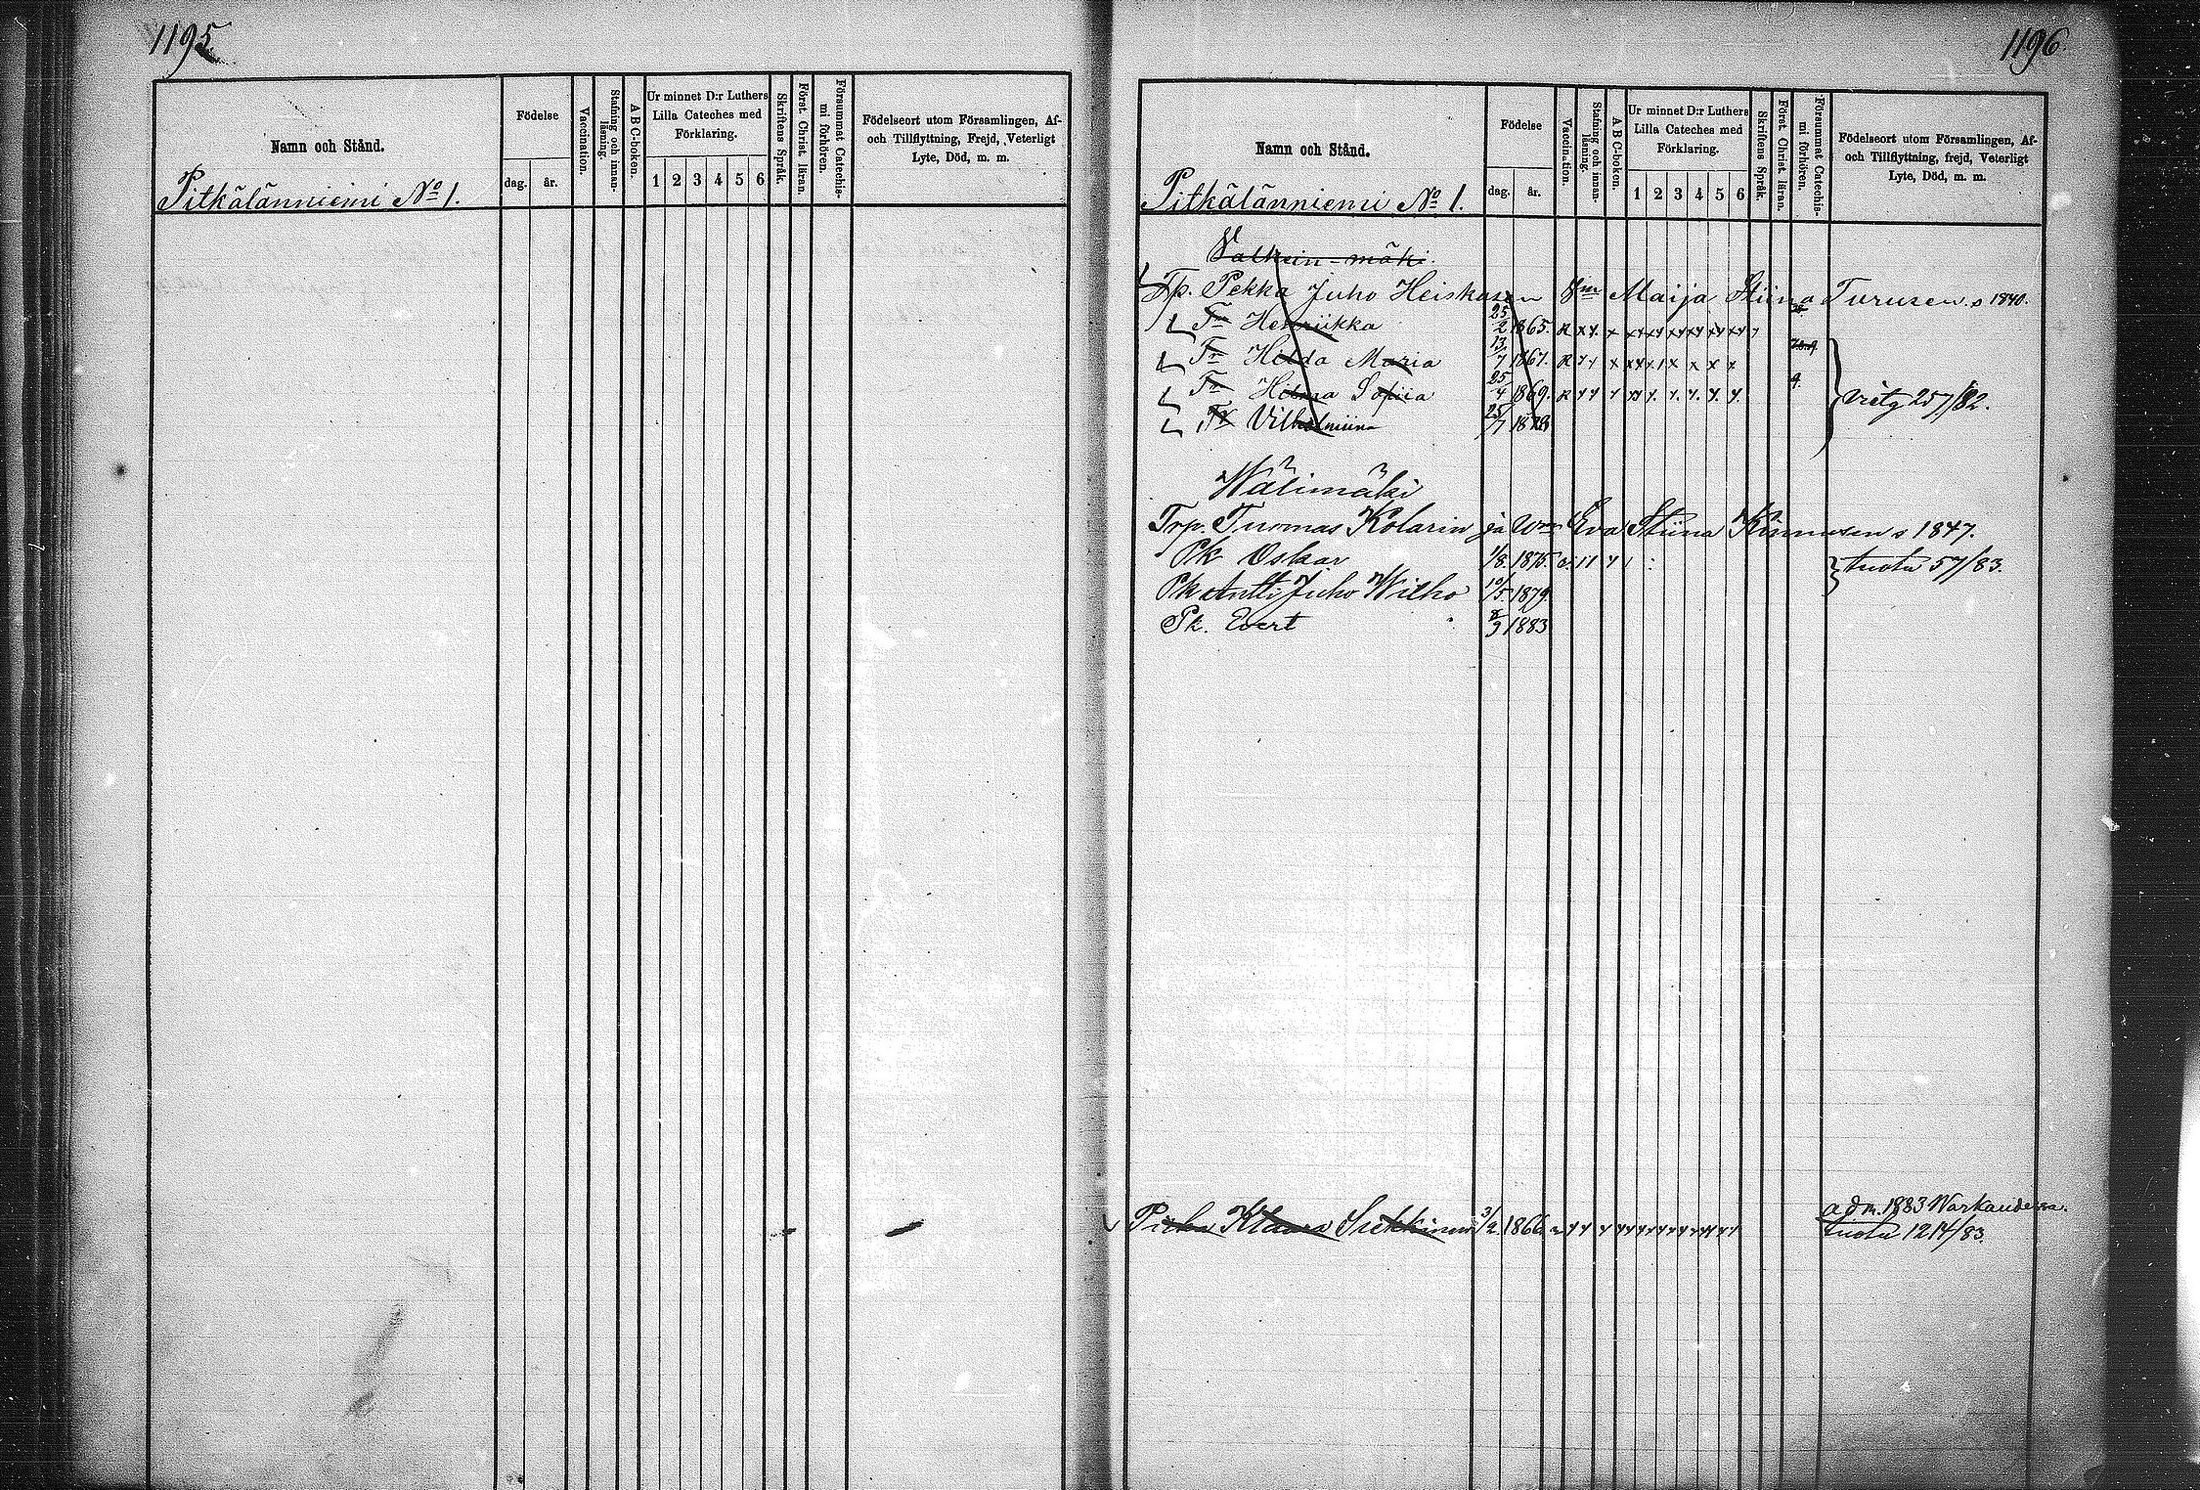 1195
Namn och Stånd.
Födelse
dag.
år.
Vaccination.
Stafning och innan-
läsning.
A B C-boken.
Ur minnet D:r Luthers
Lilla Cateches med
Förklaring.
1 2 3 4 5 6
Skriftens Språk.
Först. Christ. läran.
Försummat Catechis-
mi förhören.
Födelseort utom Församlingen, Af-
och Tillflyttning, Frejd, Veterligt
Lyte, Död, m. m.
Pitkälänniemi No 1.
1196
Namn och Stånd.
Födelse
dag.
år.
Vaccination.
Stafning och innan-
läsning.
A B C-bokon.
Ur minnet D:r Luthers
Lilla Cateches med
Förklaring.
1 2 3 4 5 6
Skriftens Språk.
Först. Christ. läran.
Försummat Catechis-
mi förhören.
Födelseort utom Församlingen, Af-
och Tillflyttning, frejd, Veterligt
Lyte, Död, m. m.
Pitkälänniemi No 1.
mäki.
Tp. Pekka Juho Heiskasen Vm Maija Stiina Turusen s 1840.
Tr Henriikka 25/2 1865.
Tr Hilda Maria 13/7 1867.
Tr Hilma Sofiia 25/4 1869.
Tr Vilhelmiina 25/7
viety 257/82.
Wälimäki
Trp. Tuomas Kolarin ja Wm Eva Stiina Kinnusen s 1847.
Pk Oskar 1/8 1875.
tuotu 57/83.
Pk Antti Juho Wilho 10/5 1879.
Pk. Evert 8/9 1883
adm. 1883 Warkaudessa.
3/2 1866
tuotu 1214/83.